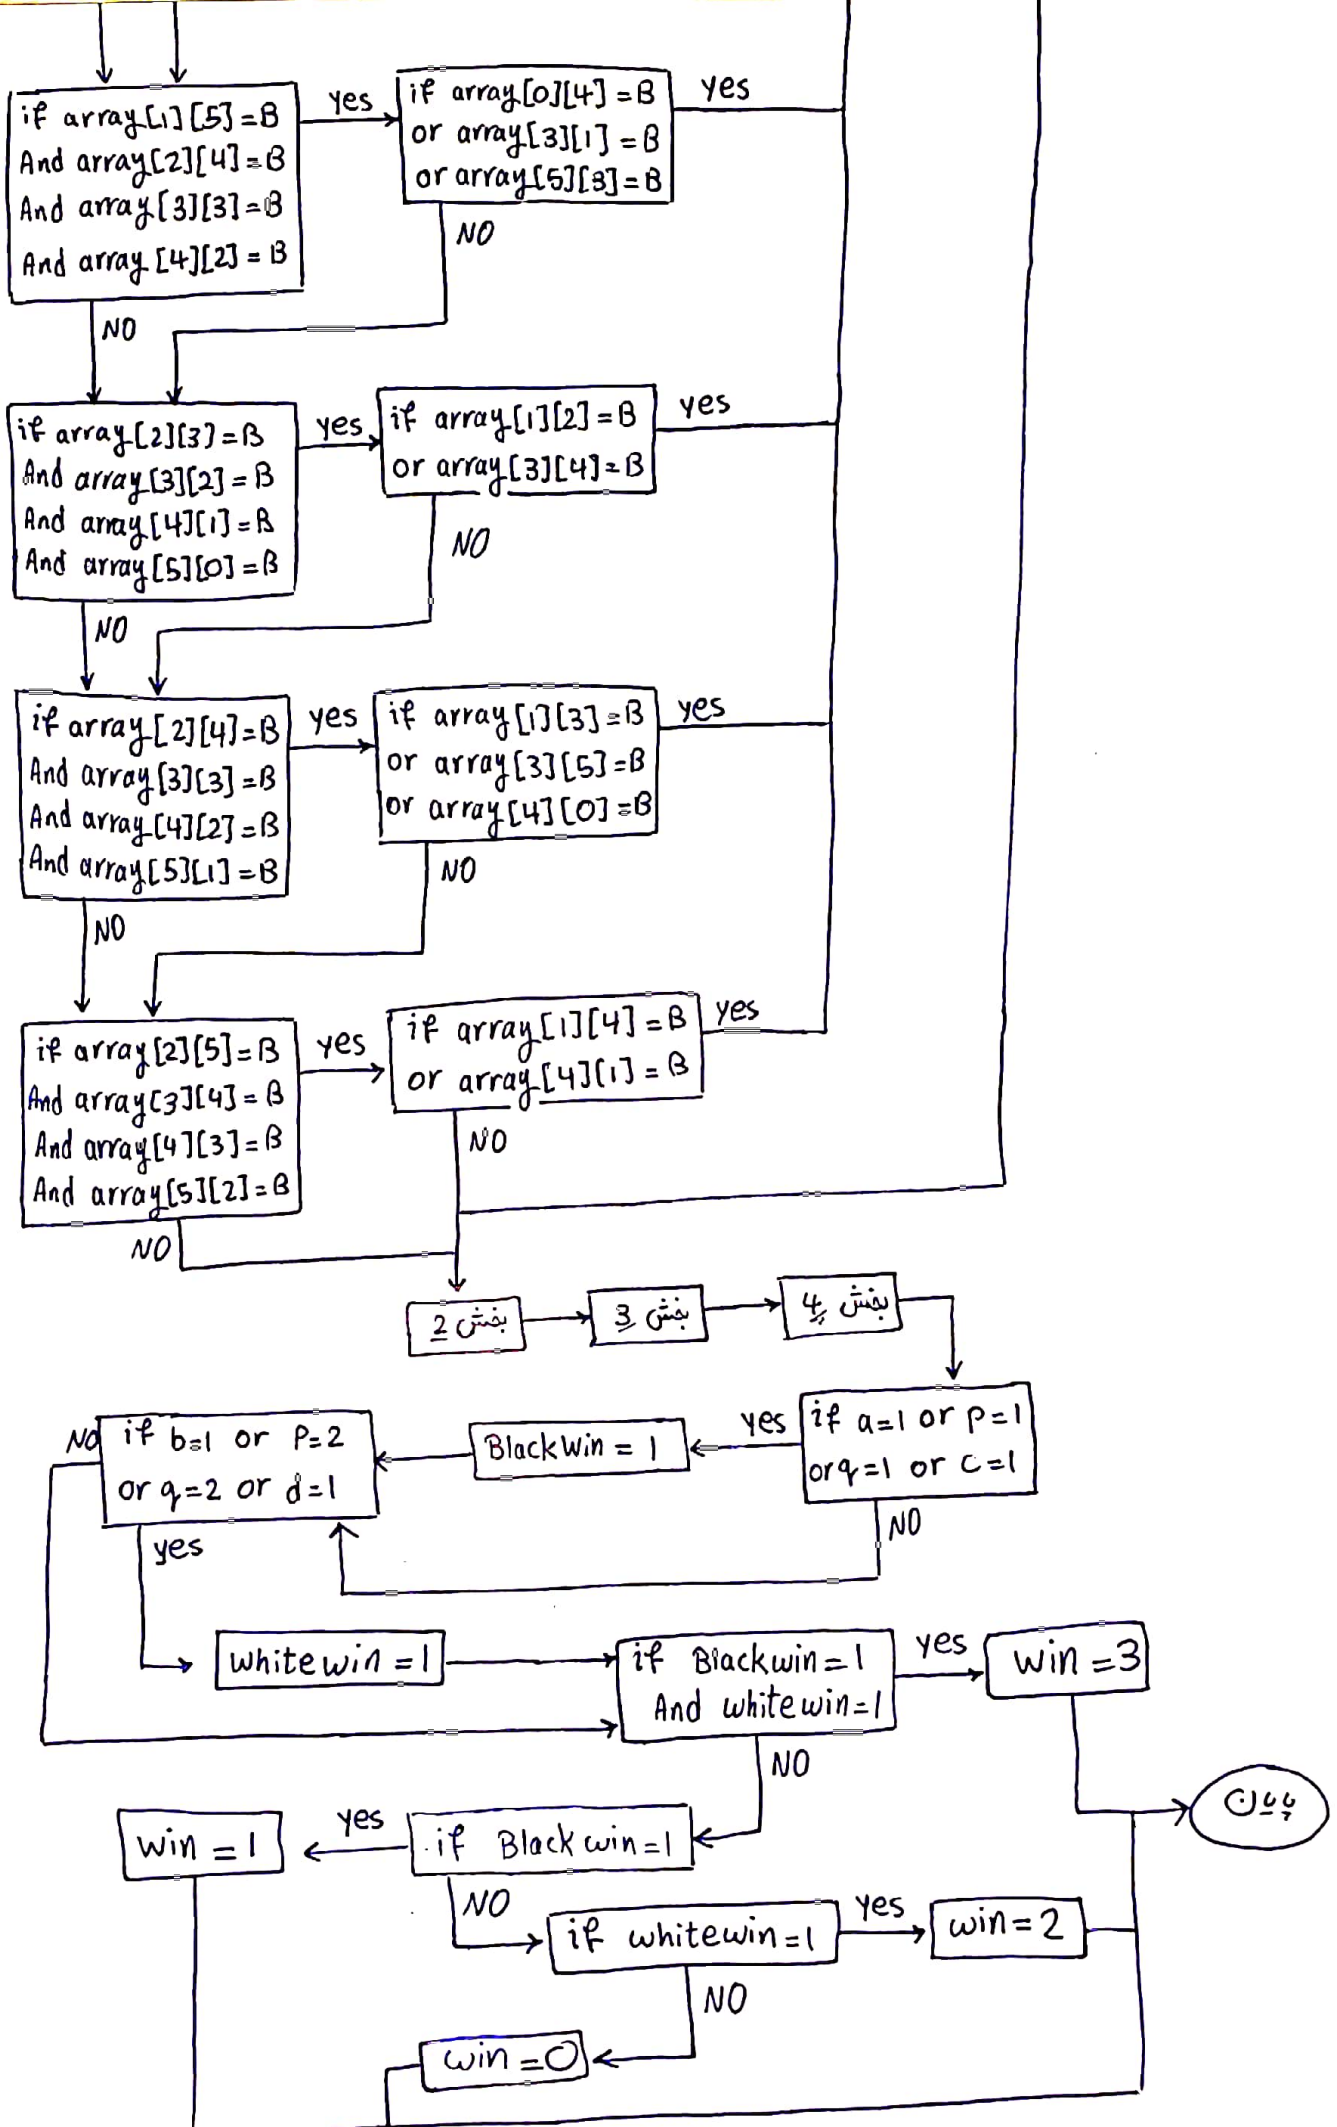 if array[1][5]=B
And array[2][4]=B
And array[3][3]=B
And array[4][2]=B
yes
if array[0][4]=B
or array[3][1]=B
or array[5][3]=B
yes
NO
NO
if array[2][3]=B
And array[3][2]=B
And array[4][1]=B
And array[5][0]=B
yes
if array[1][2]=B
or array[3][4]=B
yes
NO
NO
if array[2][4]=B
And array[3][3]=B
And array[4][2]=B
And array[5][1]=B
yes
if array[1][3]=B
or array[3][5]=B
or array[4][0]=B
yes
NO
NO
if array[2][5]=B
And array[3][4]=B
And array[4][3]=B
And array[5][2]=B
yes
if array[1][4]=B
or array[4][1]=B
yes
NO
NO
بخش 2
بخش 3
بخش 4
if a=1 or p=1
or q=1 or c=1
yes
NO
BlackWin = 1
if b=1 or P=2
or q=2 or d=1
NO
yes
whitewin=1
if Blackwin=1
And whitewin=1
yes
win=3
NO
پایان
if Blackwin=1
yes
win=1
NO
if whitewin=1
yes
win=2
NO
win=0